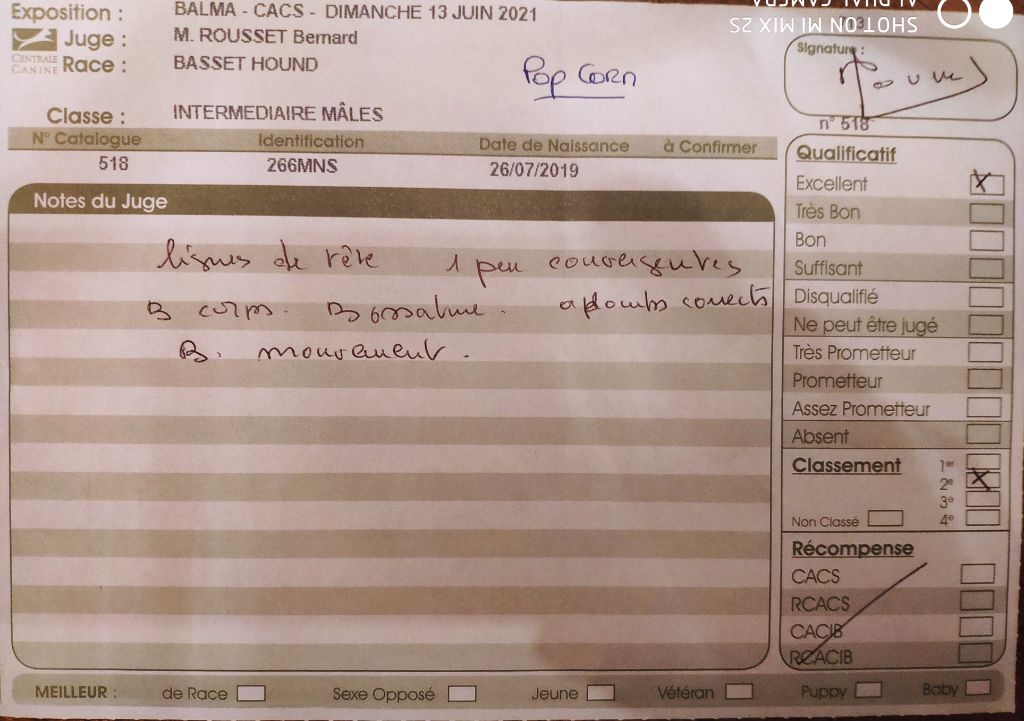 Exposition : BALMA - CACS - DIMANCHE 13 JUIN 2021
SHOT ON MI MIX 2S
AI DUAL CAMERA
Juge : M. ROUSSET Bernard
CENTRALE CANINE
Race : BASSET HOUND
Pop Corn
Signature :
n° 518
Classe : INTERMEDIAIRE MÂLES
N° Catalogue Identification Date de Naissance à Confirmer
518 266MNS 26/07/2019
Notes du Juge
lignes de tête 1 peu convergentes
B corps. B ossature. aplombs corrects
B. mouvement.
Qualificatif
Excellent X
Très Bon
Bon
Suffisant
Disqualifié
Ne peut être jugé
Très Prometteur
Prometteur
Assez Prometteur
Absent
Classement 1er
2e X
3e
Non Classé 4e
Récompense
CACS
RCACS
CACIB
RCACIB
MEILLEUR : de Race Sexe Opposé Jeune Vétéran Puppy Baby